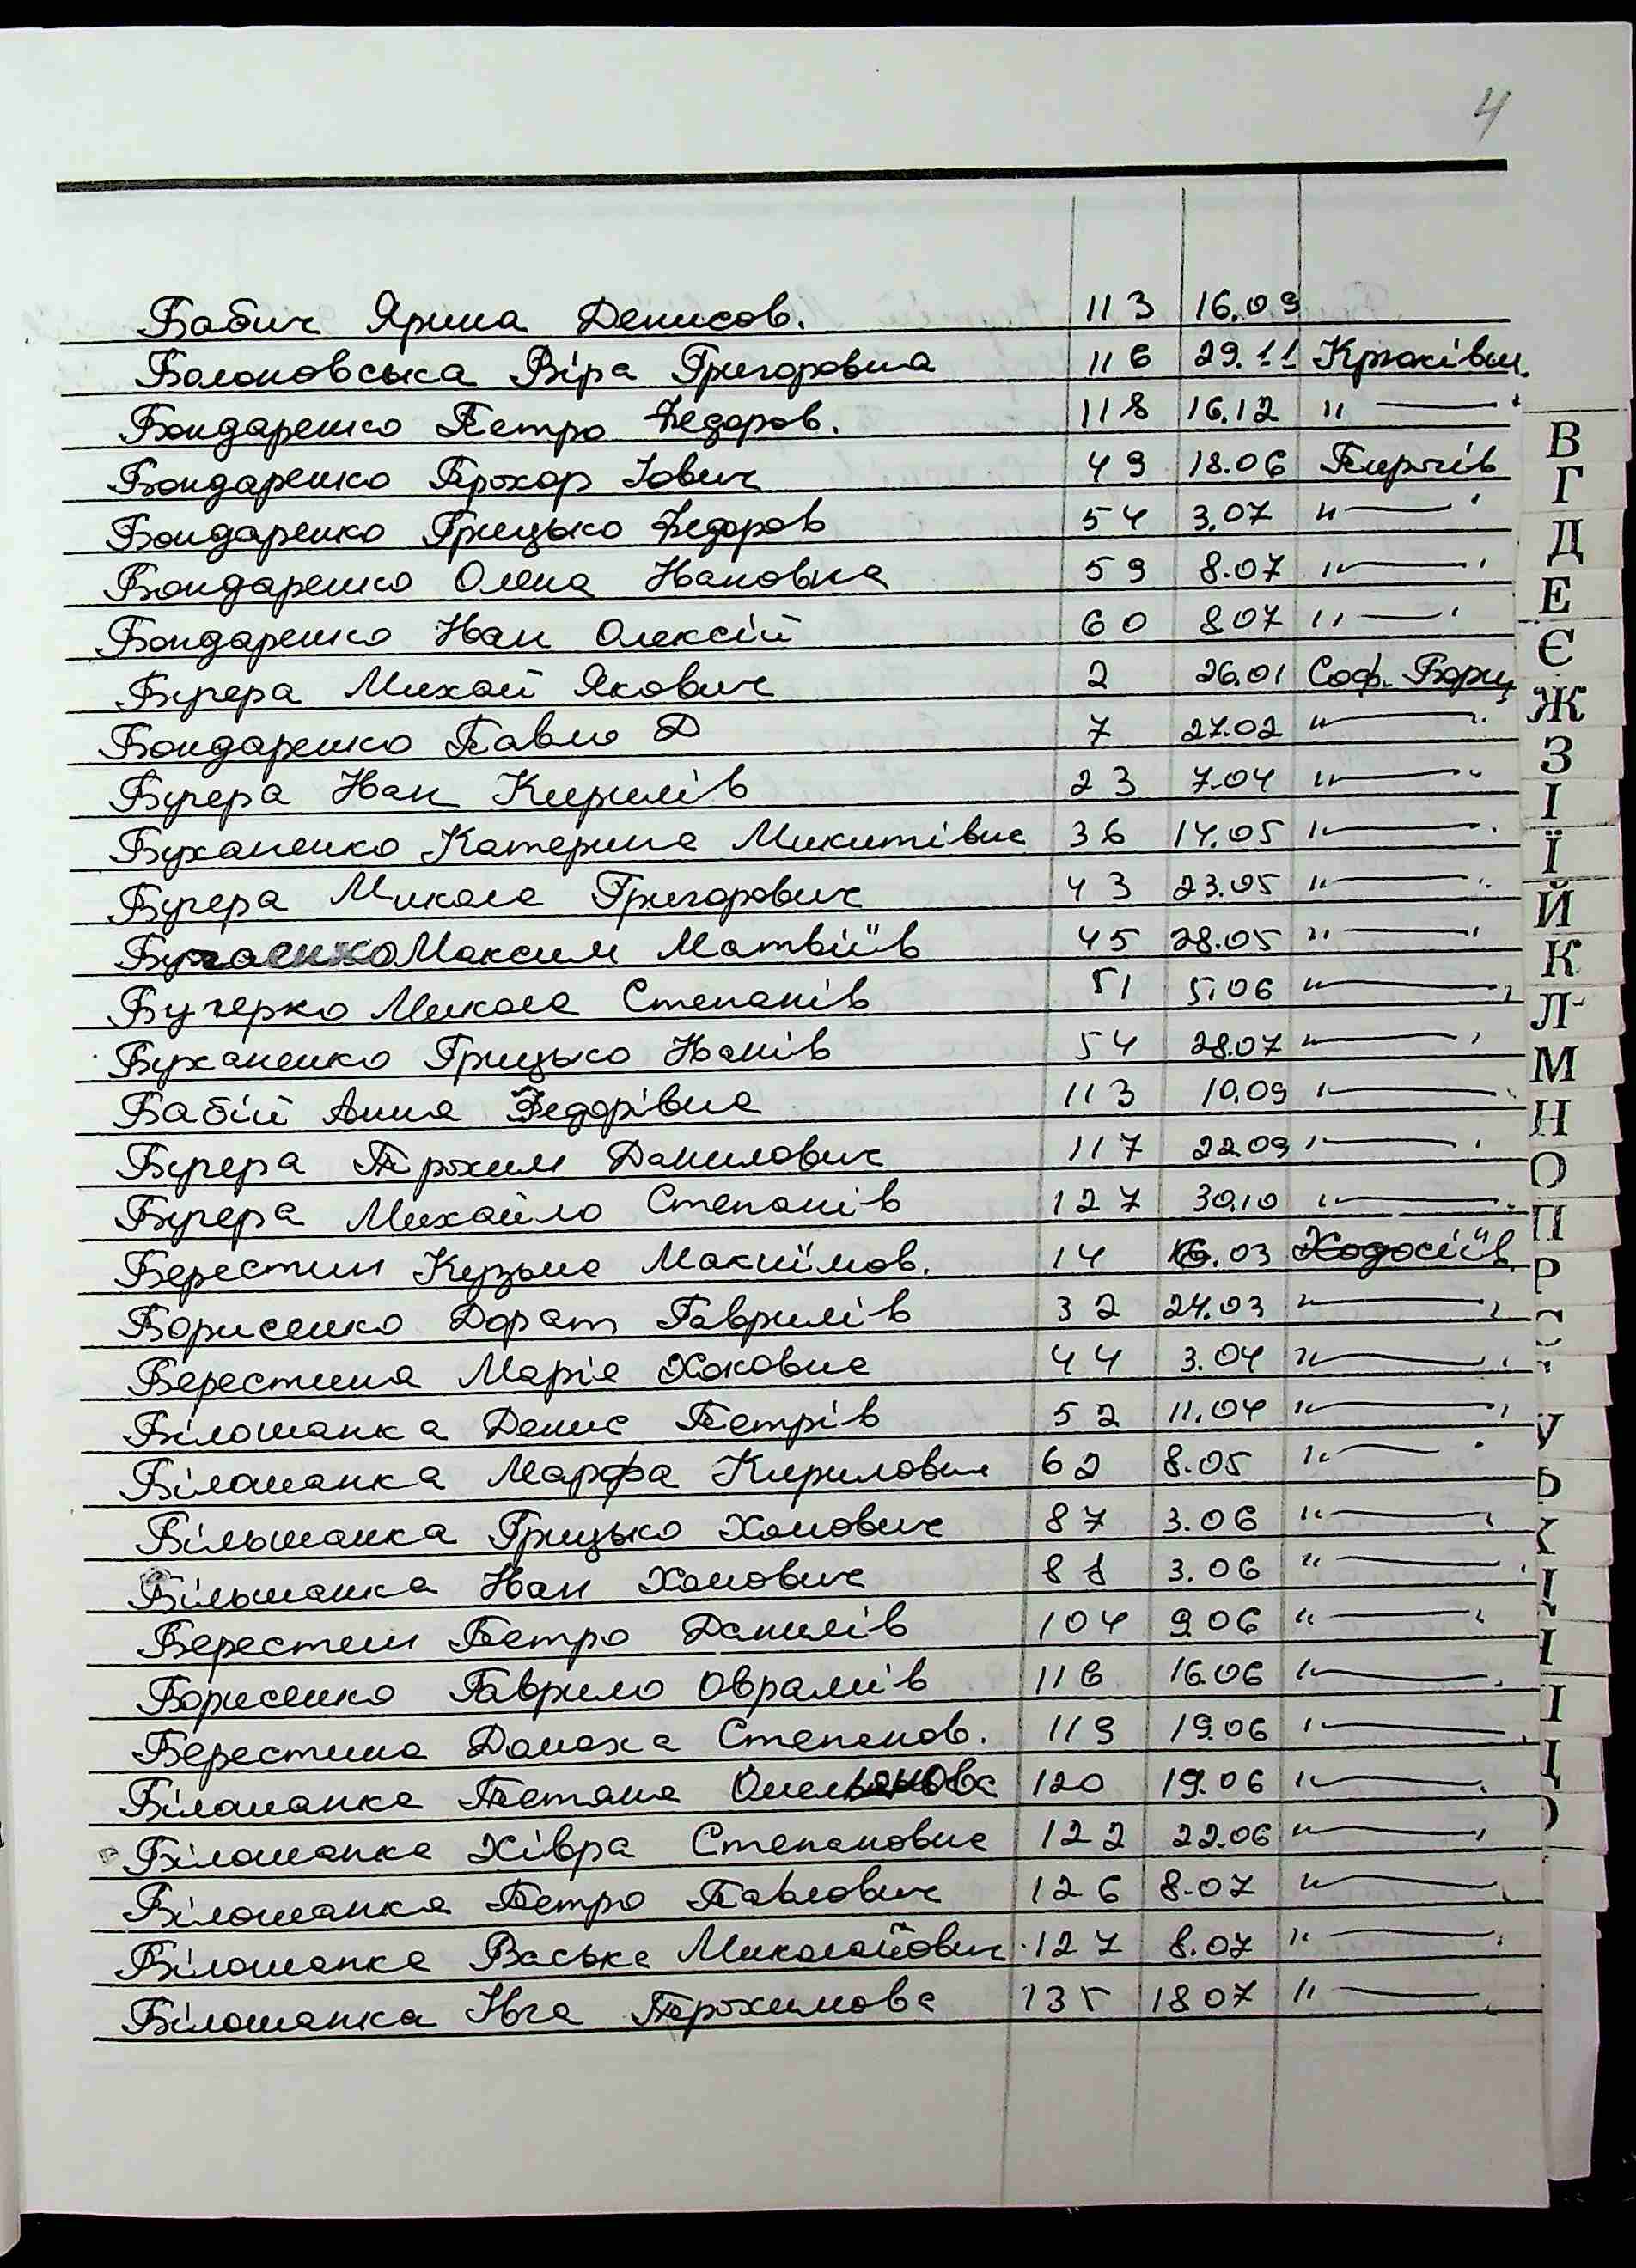 4
Бабич Ярина Денисов. 113 16.09
Болоновська Віра Григоровна 116 29.11 Крюківщ.
Бондаренко Петро Федоров. 118 16.12 "—"
Бондаренко Прохор Іович 49 18.06 Пирогів
Бондаренко Грицько Федоров 54 3.07 "—"
Бондаренко Олена Івановна 59 8.07 "—"
Бондаренко Іван Олексій 60 8.07 "—"
Бугера Михай Якович 2 26.01 Соф. Борщ
Бондаренко Павло Д 7 27.02 "—"
Бугера Іван Кирилів 23 7.04 "—"
Буханенко Катерина Микитівна 36 14.05 "—"
Бугера Микола Григорович 43 23.05 "—"
Бугаенко Максим Матвіїв 45 28.05 "—"
Бугерко Микола Степанів 51 5.06 "—"
Буханенко Грицько Іванів 54 28.07 "—"
Бабій Анна Федорівна 113 10.09 "—"
Бугера Трохим Данилович 117 22.09 "—"
Бугера Михайло Степанів 127 30.10 "—"
Берестин Кузьма Макиїмов. 14 16.03 Ходосіїв.
Борисенко Дорат Гаврилів 32 24.03 "—"
Берестина Марія Хоковна 44 3.04 "—"
Білошапка Денис Петрів 52 11.04 "—"
Білошапка Марфа Кирилович 62 8.05 "—"
Більшапка Грицько Хомович 87 3.06 "—"
Більшапка Іван Хомович 88 3.06 "—"
Берестин Петро Данилів 104 9.06 "—"
Борисенко Гаврило Оврамів 116 16.06 "—"
Берестина Домаха Степанов. 119 19.06 "—"
Білошапка Тетяна Омельянова 120 19.06 "—"
Білошапка Хівра Степановна 122 22.06 "—"
Білошапка Петро Павлович 126 8.07 "—"
Білошапка Васька Миколайович 127 8.07 "—"
Білошапка Івга Трохимова 135 18 07 "—"
В
Г
Д
Е
Є
Ж
З
І
Ї
Й
К
Л
М
Н
О
П
Р
С
У